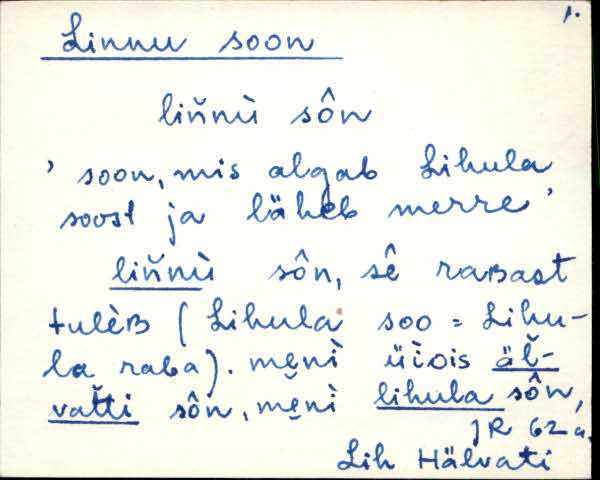 1.
Linnu soon
liňnù sôn
' soon, mis algab Lihula
soost ja läheb merre '
liňnù sôn, sê raʙast
tulèʙ (Lihula soo = Lihu-
la raba). mẹnì üìois äľ-
vaťti sôn, mẹnì lihula sôn,
JR 62 a.
Lih Hälvati